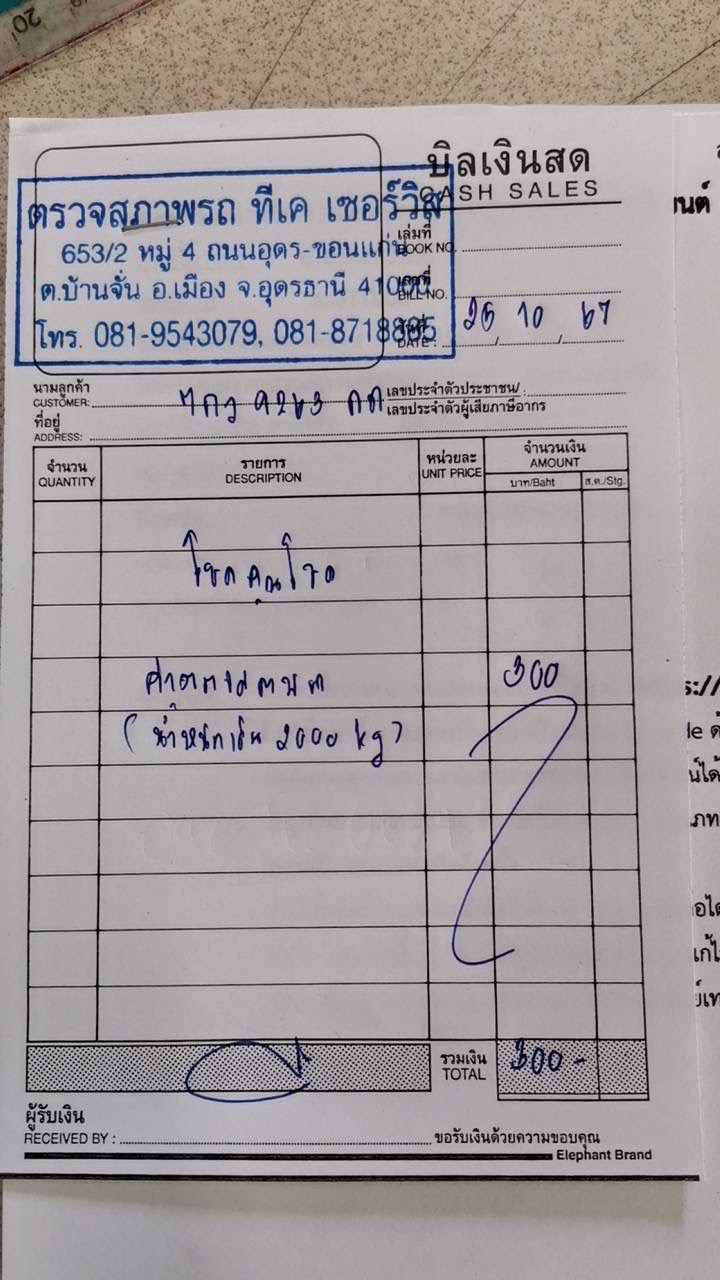 20
บิลเงินสด
CASH SALES
ตรวจสภาพรถ ทีเค เซอร์วิส
653/2 หมู่ 4 ถนนอุดร-ขอนแก่น
ต.บ้านจั่น อ.เมือง จ.อุดรธานี 41000
โทร. 081-9543079, 081-8718805
เล่มที่
BOOK NO.
เลขที่
BILL NO.
วันที่
DATE : 25, 10, 67
นามลูกค้า
CUSTOMER: 9263
เลขประจำตัวประชาชน/
เลขประจำตัวผู้เสียภาษีอากร
ที่อยู่
ADDRESS:
จำนวน รายการ หน่วยละ จำนวนเงิน
QUANTITY DESCRIPTION UNIT PRICE AMOUNT
บาท/Baht ส.ต./Stg.
ค่าตรวจสภาพ 300
(น้ำหนักเกิน 2000 kg)
รวมเงิน
TOTAL 300-
ผู้รับเงิน
RECEIVED BY :
ขอรับเงินด้วยความขอบคุณ
Elephant Brand
นต์
s://
le ด้